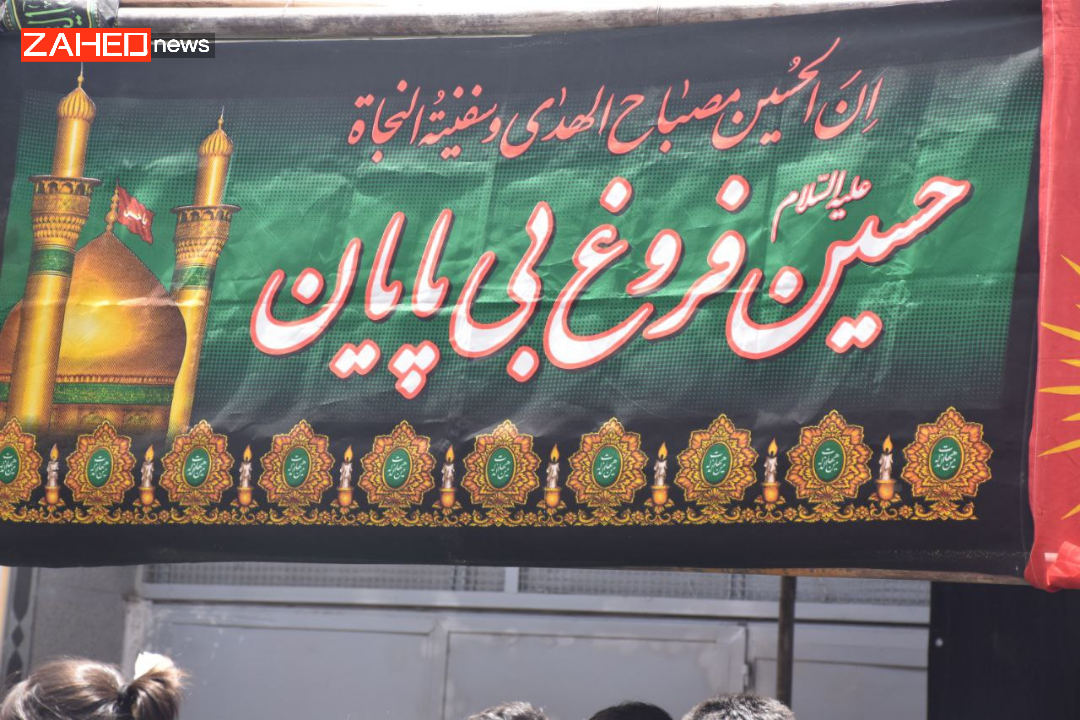 ZAHED news
اِنَ الحُسین مصباح الهدی و سفنیة النجاة
علیه السّلام
حسین فروغ بی پایان